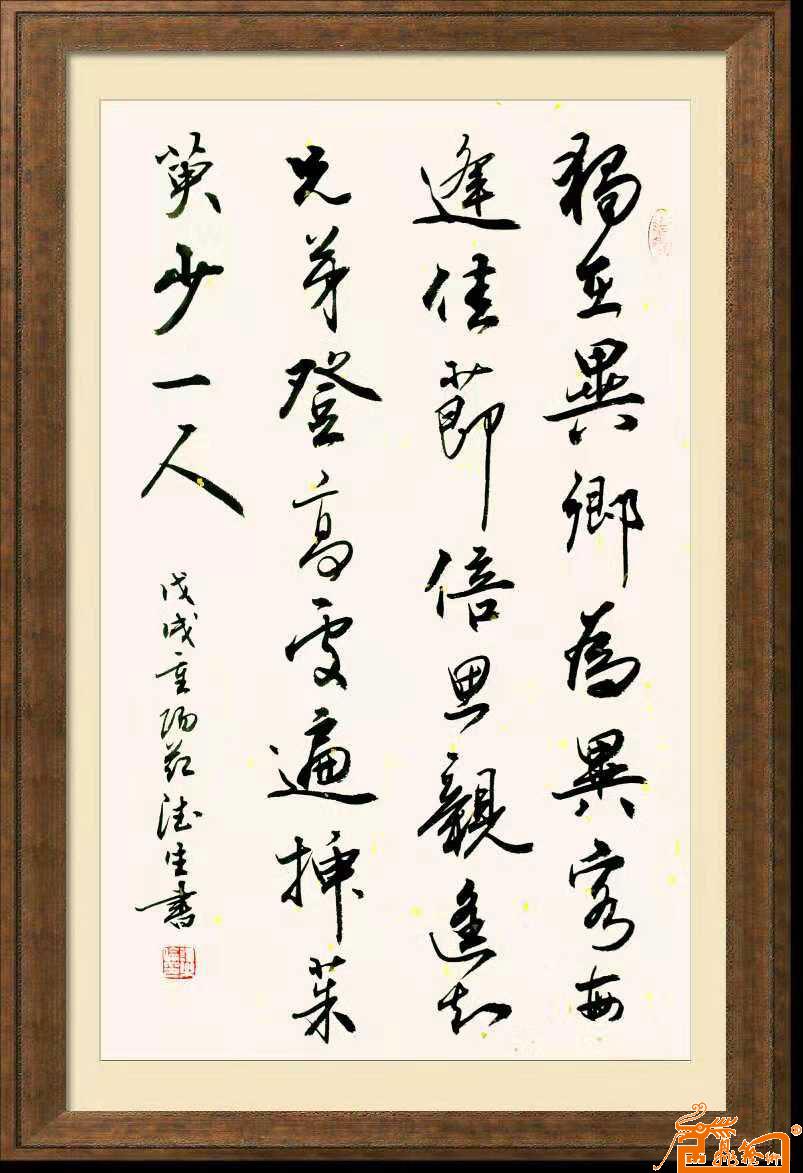 獨在異鄉為異客每
逢佳節倍思親遙知
兄弟登高處遍插茱
萸少一人
戊戌重陽德生書